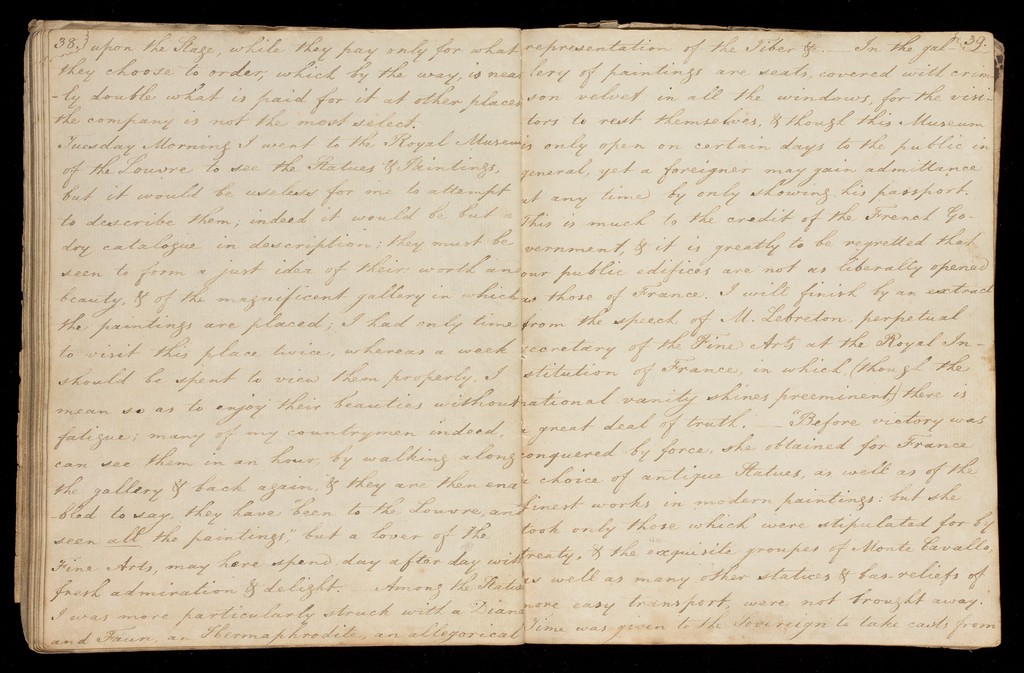 38.
upon the Stage, while they pay only for what
they choose to order, which by the way, is near
-ly double what is paid for it at other places
the company is not the most select.
Tuesday Morning I went to the Royal Museum
of the Louvre to see the Statues & Paintings,
but it would be useless for me to attempt
to describe them; indeed it would be but a
dry catalogue in description; they must be
seen to form a just idea of their worth an
beauty, & of the magnificent gallery in which
the paintings are placed; I had only time
to visit this place twice, whereas a week
should be spent to view them properly, I
mean so as to enjoy their beauties without
fatigue; many of my countrymen indeed,
can see them in an hour, by walking along
the gallery & back again, & they are then ena
-bled to say, they have "been to the Louvre, and
seen all the paintings," but a lover of the
Fine Arts, may here spend day after day with
fresh admiration & delight. — Among the Statues
I was more particularly struck with a Diana
and Faun, an Hermaphrodite, an allegorical
39.
representation of the Tiber &. — In the gal-
lery of paintings are seats, covered with crim
son velvet in all the windows, for the visi-
tors to rest themselves, & though this Museum
is only open on certain days to the public in
general, yet a foreigner may gain admittance
at any time by only showing his passport.
This is much to the credit of the French Go-
vernment, & it is greatly to be regretted that
our public edifices are not as liberally opened
as those of France. I will finish by an extract
from the speech of M. Lebreton perpetual
secretary of the Fine Arts at the Royal In-
stitution of France, in which, (though the
national vanity shines preeminent) there is
a great deal of truth. — "Before victory was
conquered by force, she obtained for France
a choice of antique Statues, as well as of the
finest works in modern paintings: but she
took only those which were stipulated for by
treaty, & the exquisite groupes of Monte Cavallo,
as well as many other statues & bas-reliefs of
more easy transport, were not brought away.
Time was given to the Sovereign to take casts from